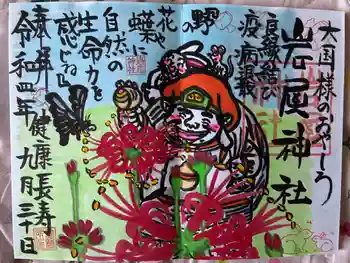 大国様のおやしろ
岩尾神社
良縁結び
疫病退散
野の
花や
蝶に
自然の
生命力を
感じる
奉拝
健康長寿
令和四年
九月三十日